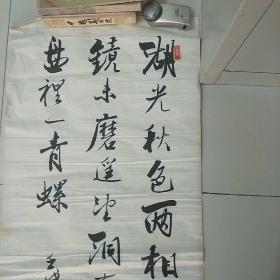 湖光秋色两相
镜未磨遥望洞
盘裡一青螺